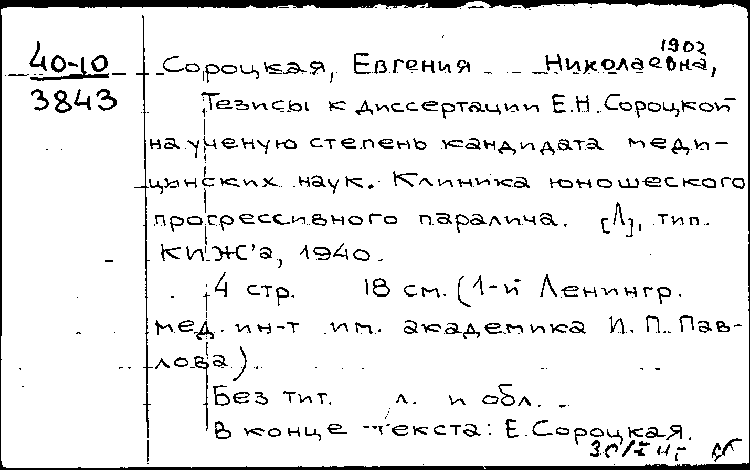 1902
40-10 Сороцкая, Евгения Николаевна,
3843 Тезисы к диссертации Е.Н. Сороцкой
на ученую степень кандидата меди-
цинских наук. Клиника юношеского
прогрессивного паралича. [Л], тип.
КИЖ'а, 1940.
4 стр. 18 см. (1-й Ленингр.
мед. ин-т им. академика И. П. Пав-
лова).
Без тит. л. и обл.
В конце текста: Е. Сороцкая.